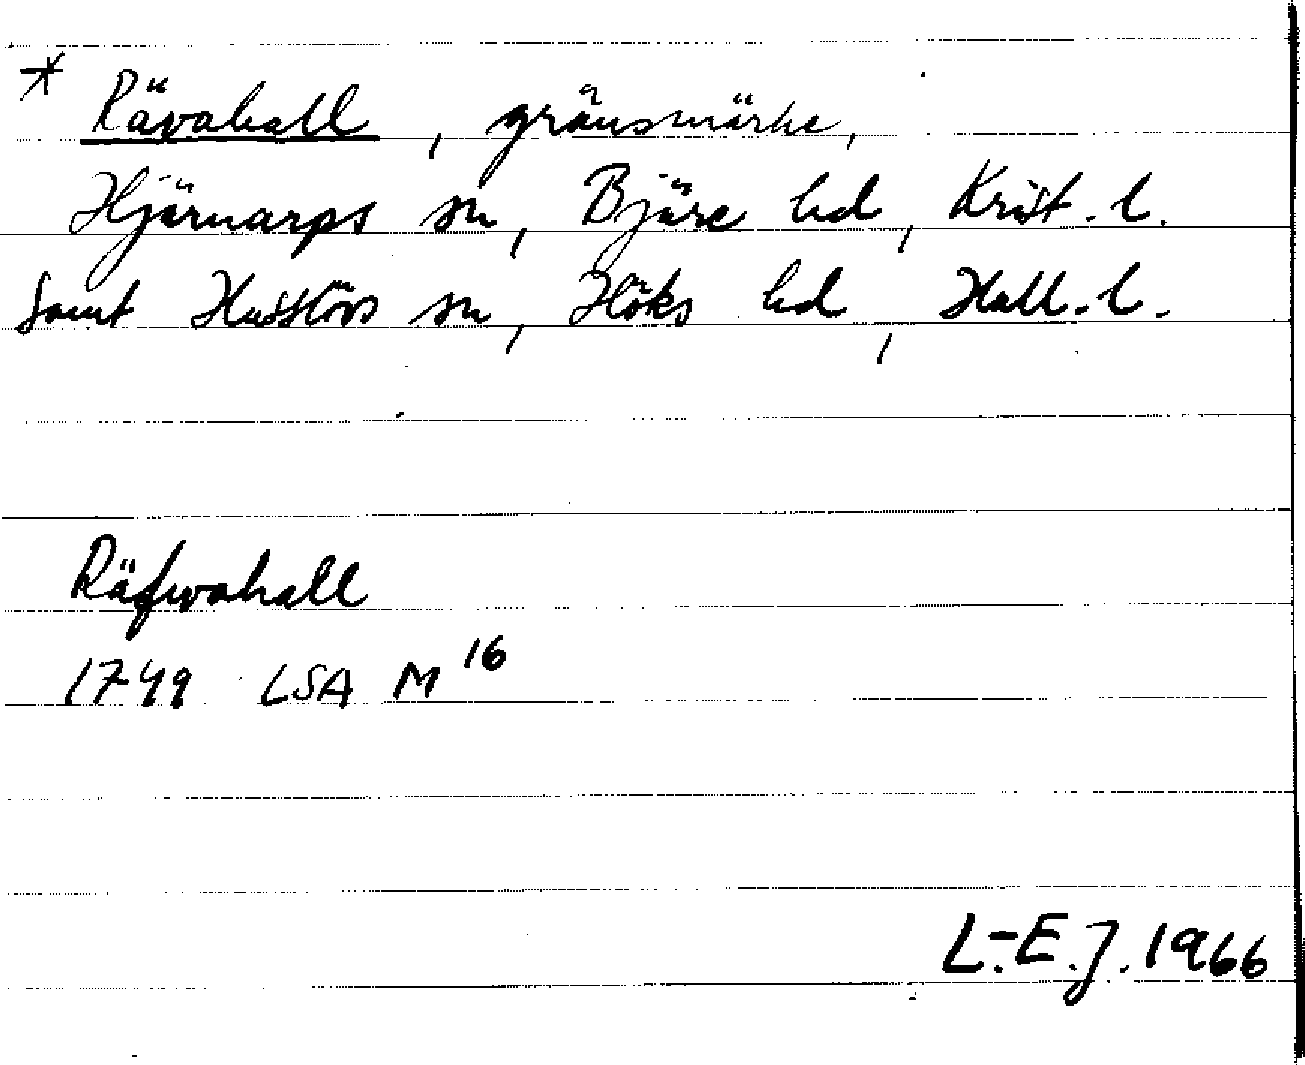 * Rävahall, gränsmärke,
Hjärnarps sn, Bjäre hd, Krist. l.
samt Hasslövs sn, Höks hd, Hall. l.
Räfwahall
1749 LSA M 16
L.-E.J. 1966